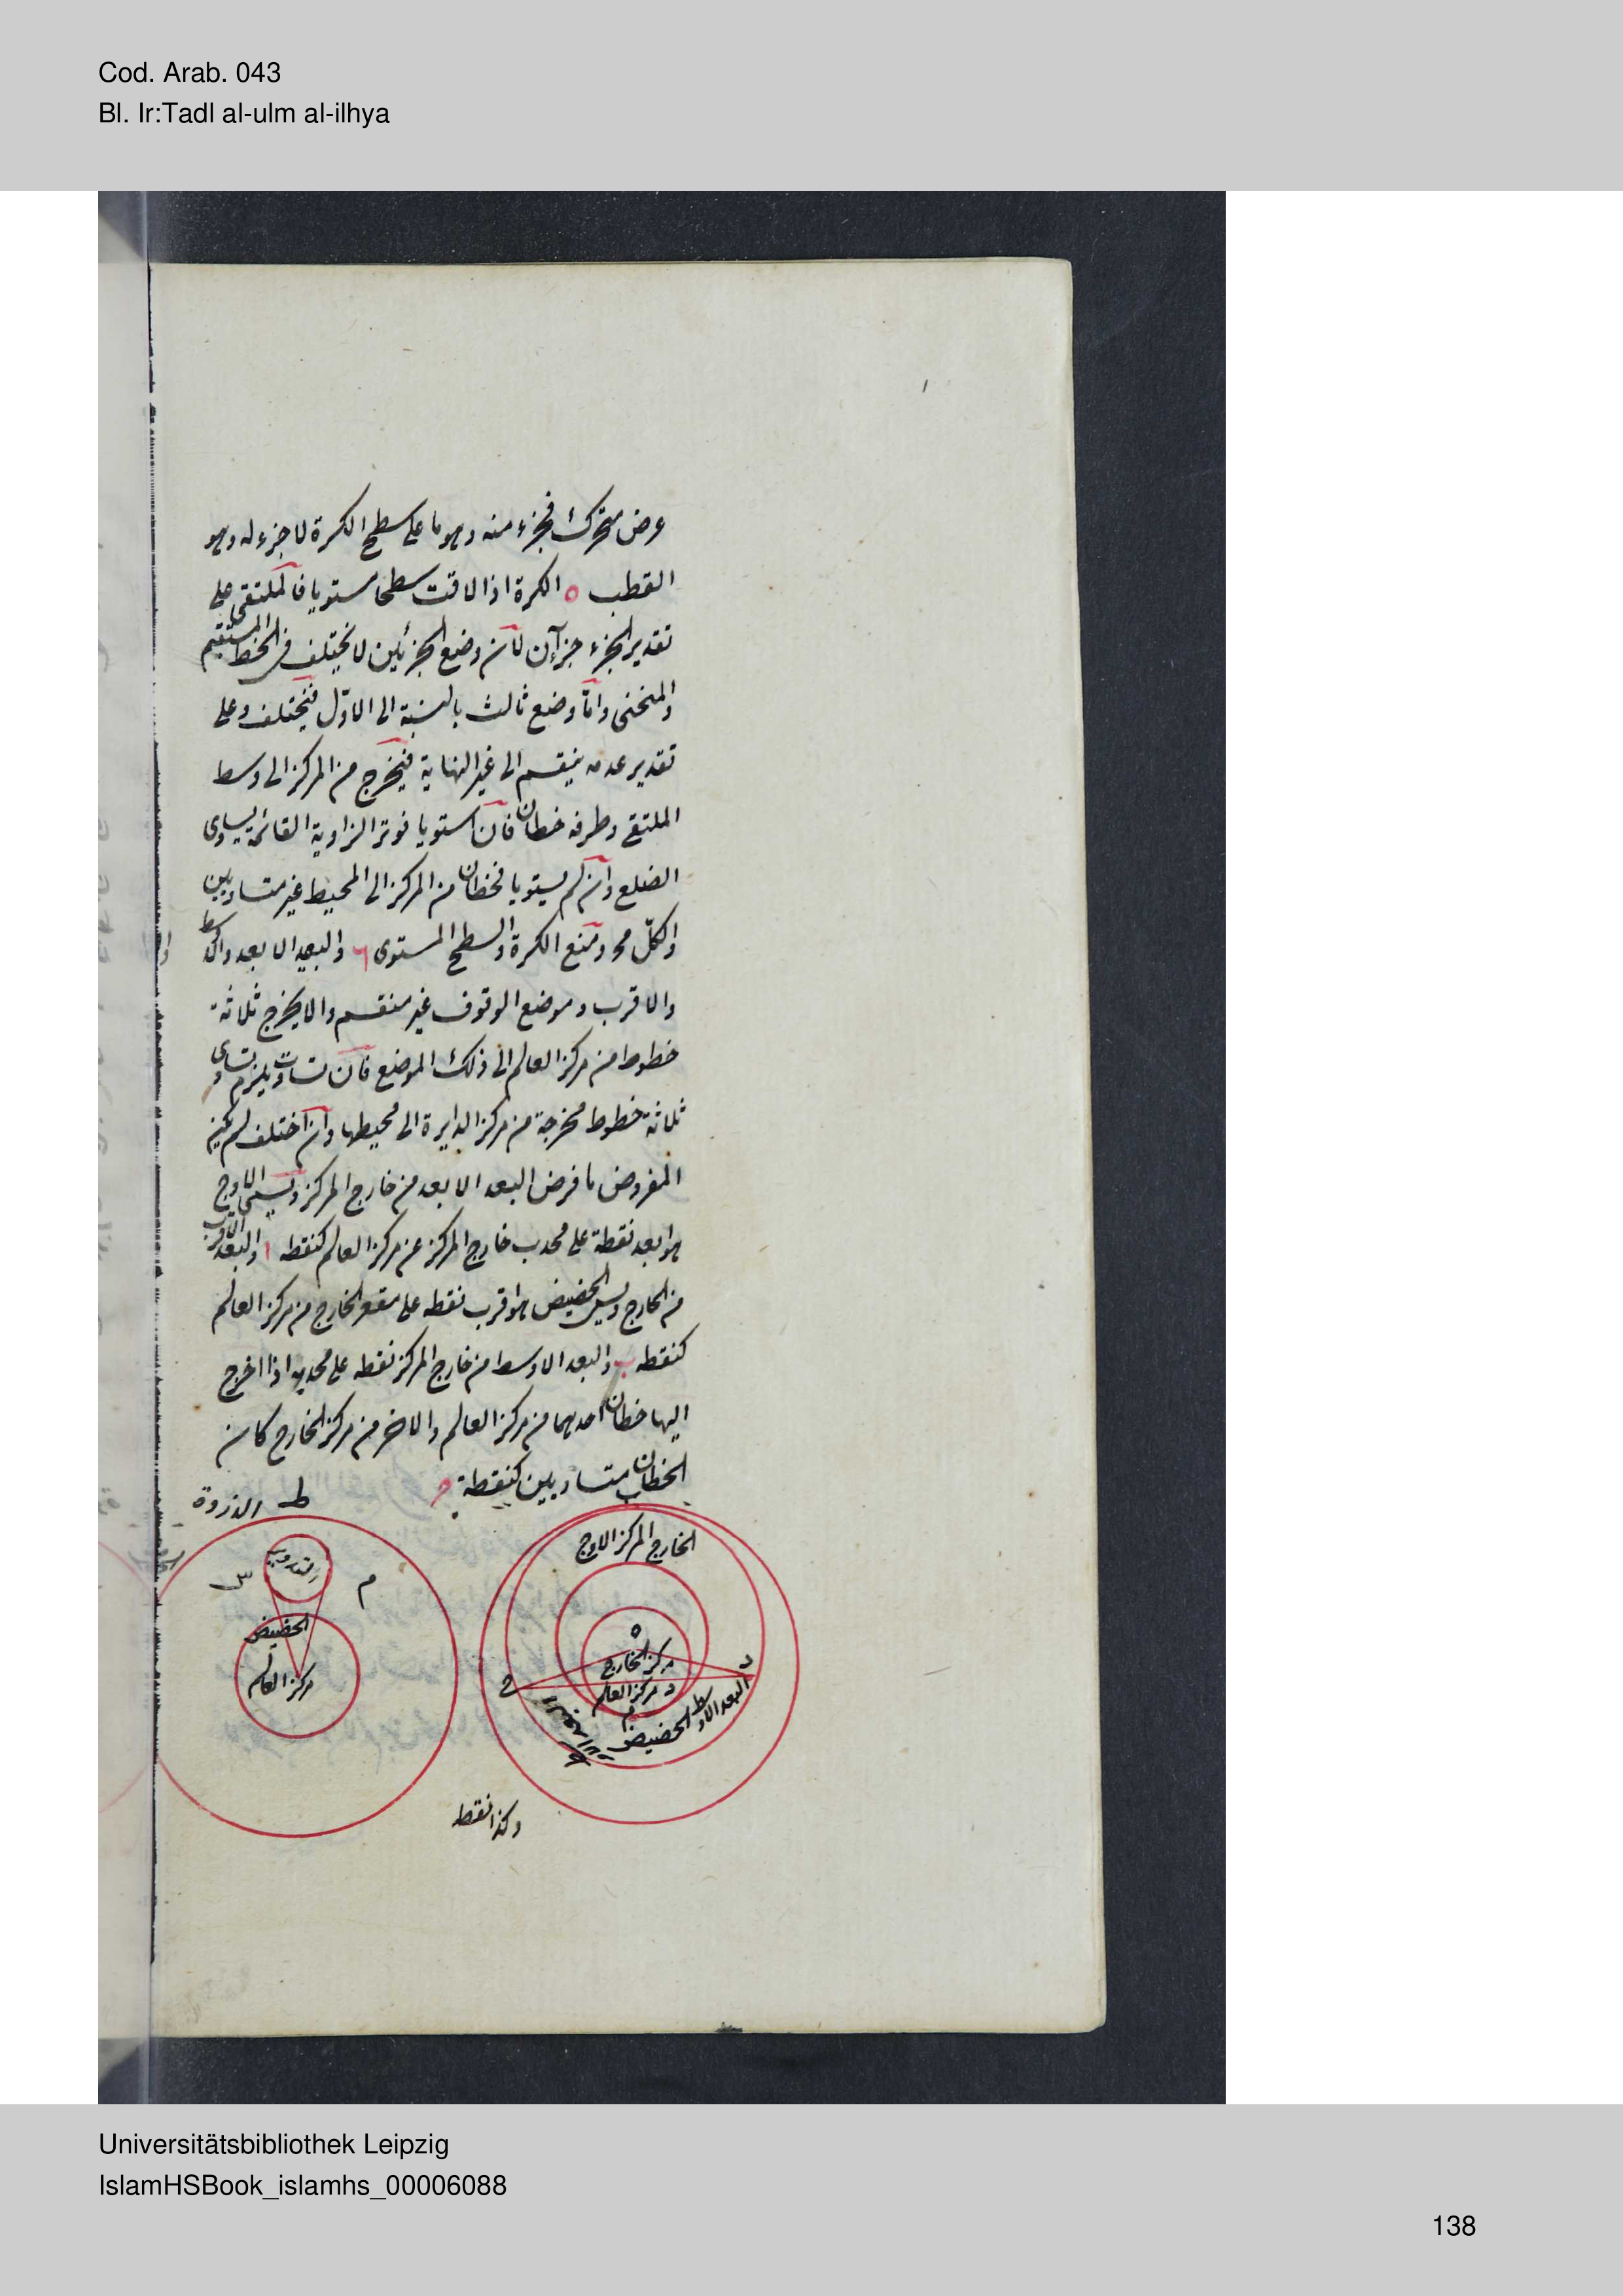 Cod. Arab. 043
Bl. Ir:Tadl al-ulm al-ilhya
عرض متحرك فجزء منه وهو ما على سطح الكرة لا جزء له وهو
القطب ٥ الكرة اذا لاقت سطحا مستويا فالملتقى على
تقدير الجزء جزآن لأن وضع الجزئين لا يختلف في الخط المستقيم
والمنحنى وامّا وضع ثالث بالنسبة الى الاوّل فيختلف وعلى
تقدير عدمه ينقسم الى غير النهاية فيخرج من المركز الى وسط
الملتقى وطرفه خطان فان استويا فوتر الزاوية القائمة يساوى
الضلع وان لم يستويا فخطان من المركز الى المحيط غير متساويين
والكلّ مح ومنع الكرة والسطح المستوى ٦ والبعد الابعد والاوسط
والاقرب وموضع الوقوف غير منقسم والا يخرج ثلاثة
خطوط من مركز العالم الى ذلك الموضع فان تساوت يلزم تساوى
ثلاثة خطوط مخرجة من مركز الدايرة الى محيطها وان اختلف لم يكن
المفروض ما فرض البعد الابعد من خارج المركز ويسمى الاوج
هو ابعد نقطة على محدب خارج المركز عن مركز العالم كنقطه ا والبعد الاقرب
من الخارج ويسمى الحضيض هو اقرب نقطه على مقعر الخارج من مركز العالم
كنقطه ب والبعد الاوسط من خارج المركز نقطه على محدبه اذا اخرج
اليها خطان احدهما من مركز العالم والاخر من مركز الخارج كان
الخطان متساويين كنقطة ح
الخارج المركز الاوج
ه
مركز الخارج
د مركز العالم
ح
د
الحضيض
البعد الاوسط
ط الذروة
التدوير
م
س
الحضيض
مركز العالم
وكذا نقط
Universitätsbibliothek Leipzig
IslamHSBook_islamhs_00006088
138